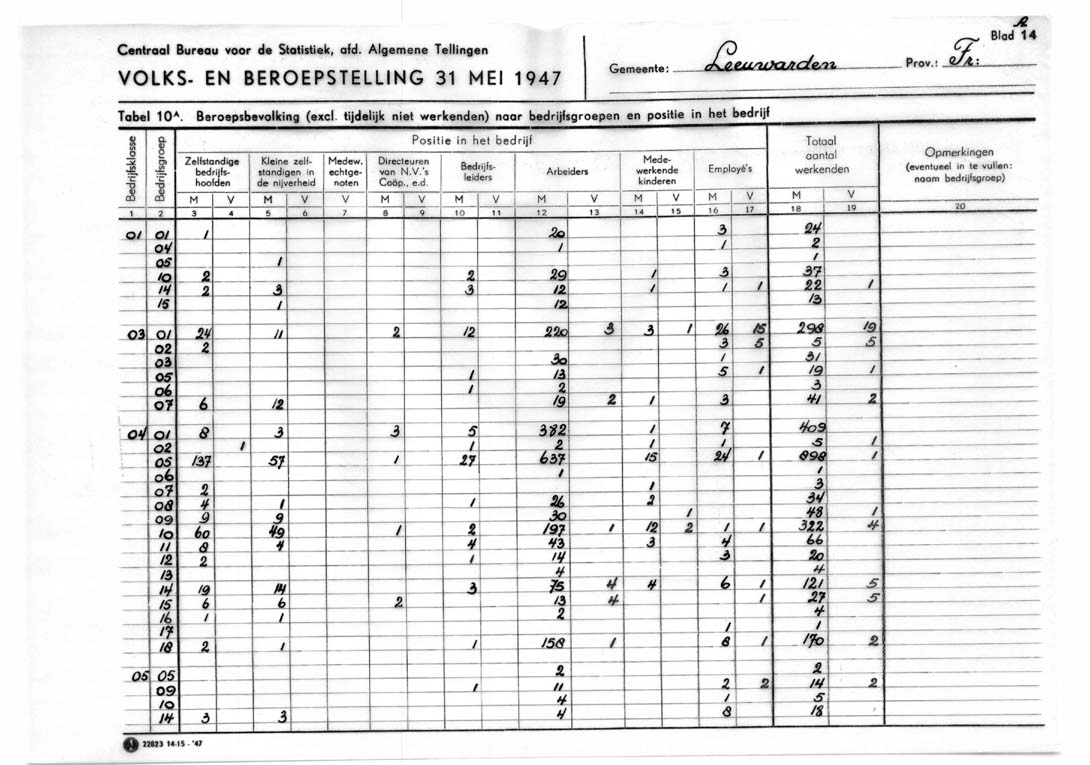 R
Blad 14
Centraal Bureau voor de Statistiek, afd. Algemene Tellingen
VOLKS- EN BEROEPSTELLING 31 MEI 1947
Gemeente: Leeuwarden Prov.: Fr:
Tabel 10A. Beroepsbevolking (excl. tijdelijk niet werkenden) naar bedrijfsgroepen en positie in het bedrijf
Bedrijfsklasse Bedrijfsgroep Positie in het bedrijf Totaal aantal werkenden Opmerkingen (eventueel in te vullen: naam bedrijfsgroep)
Zelfstandige bedrijfshoofden Kleine zelfstandigen in de nijverheid Medew. echtgenoten Directeuren van N.V.'s Coöp., e.d. Bedrijfsleiders Arbeiders Medewerkende kinderen Employé's
M V M V V M V M V M V M V M V M V
1 2 3 4 5 6 7 8 9 10 11 12 13 14 15 16 17 18 19 20
01 01 1 20 3 24
04 1 1 2
05 1 1
10 2 2 29 1 3 37
14 2 3 3 12 1 1 1 22 1
15 1 12 13
03 01 24 11 2 12 220 3 3 1 26 15 298 19
02 2 3 5 5 5
03 30 1 31
05 1 13 5 1 19 1
06 1 2 3
07 6 12 19 2 1 3 41 2
04 01 8 3 3 5 382 1 7 409
02 1 1 2 1 1 5 1
05 137 57 1 27 637 15 24 1 898 1
06 1 1
07 2 1 3
08 4 1 1 26 2 34
09 9 9 30 1 48 1
10 60 49 1 2 197 1 12 2 1 1 322 4
11 8 4 4 43 3 4 66
12 2 1 14 3 20
13 4 4
14 19 14 3 75 4 4 6 1 121 5
15 6 6 2 13 4 1 27 5
16 1 1 2 4
17 1 1
18 2 1 1 158 1 8 1 170 2
05 05 2 2
09 1 11 2 2 14 2
10 4 1 5
14 3 3 4 8 18
N 22823 14-15 - '47